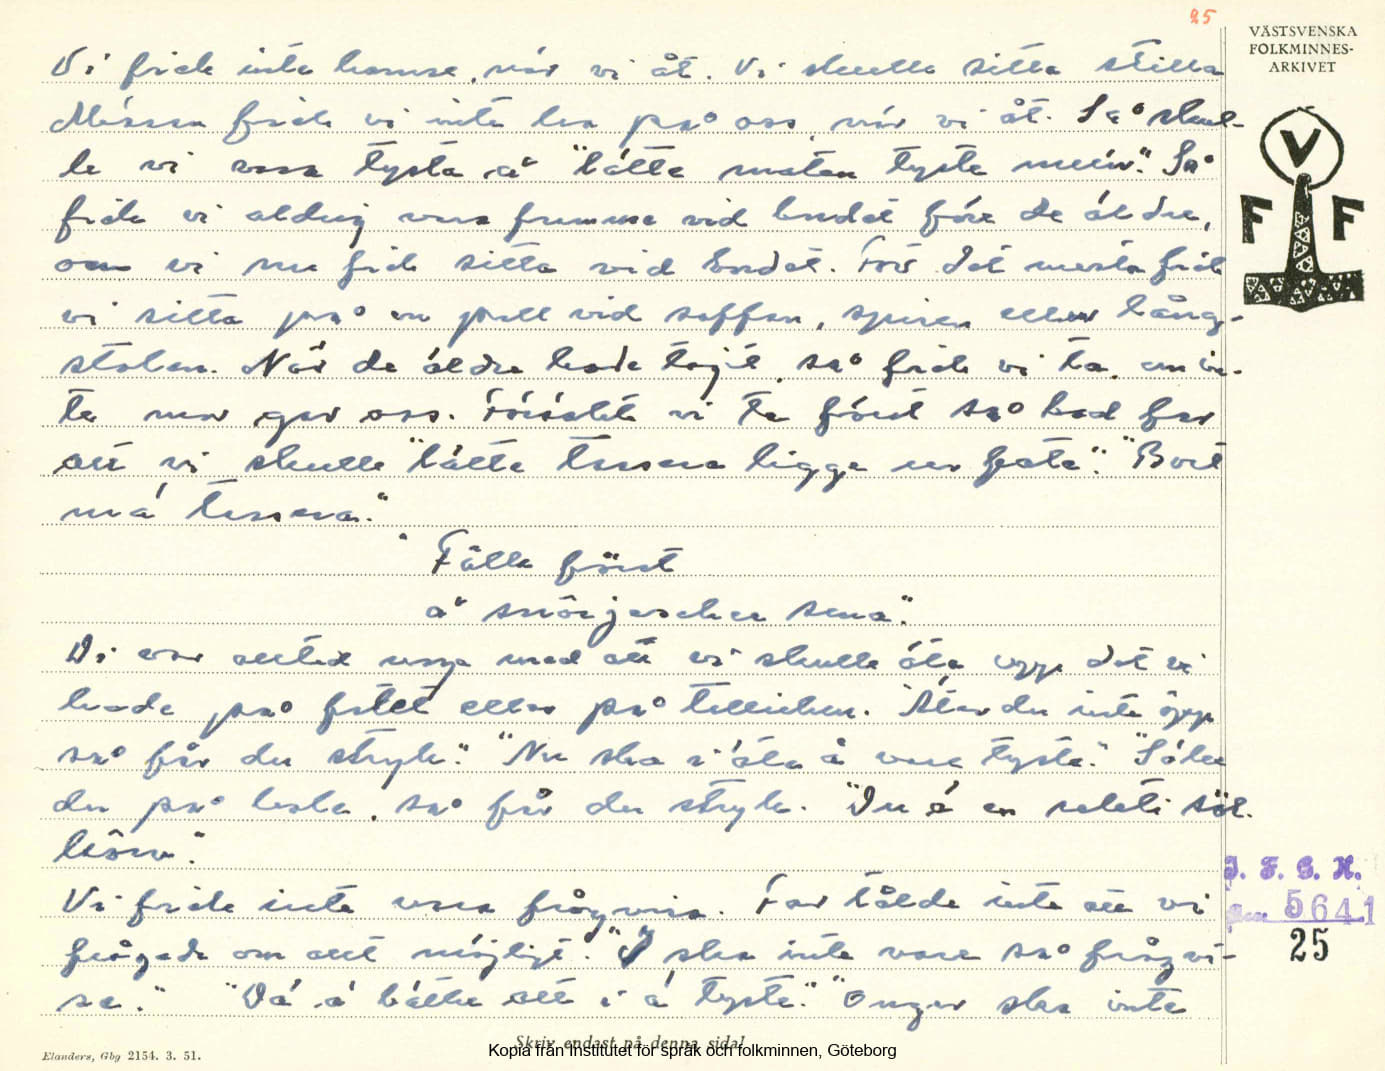 25
VÄSTSVENSKA
FOLKMINNES-
ARKIVET
V
F F
Vi fick inte komma, när vi åt. Vi skulle sitta stilla
Mössa fick vi inte ha på oss, när vi åt. Så skul-
le vi vara tysta å "låtta maten tyste mun". Så
fick vi aldrig vara framme vid bordet före de äldre,
om vi nu fick sitta vid bordet. För det mesta fick
vi sitta på en pall vid soffan, spisen eller lång-
stolen. När de äldre hade tagit, så fick vi ta, om in-
te mor gav oss. Försökte vi ta först så bad far
att vi skulle "låtta tassara ligga".
"Bort
má tassara."
Fålla först
å snörjescher sena".
Di var alltid noga med att vi skulle äta upp det vi
hade på fatet eller på talliken. "Äter du inte öpp
så får du stryk". "Nu ska i äta å vare tysta". "Söler
du på , så får du stryk. "Du ä en
Vi fick inte vara frågvisa. Far tålde inte att vi
frågade om allt möjligt. "I ska inte vare så frågvi-
sa". "Dá á bátter att i á tysta". "Ongar ska inte
J. F. G. H.
5641
25
Elanders, Gbg 2154. 3. 51.
Skriv endast på denna sida!
Kopia från Institutet för språk och folkminnen, Göteborg